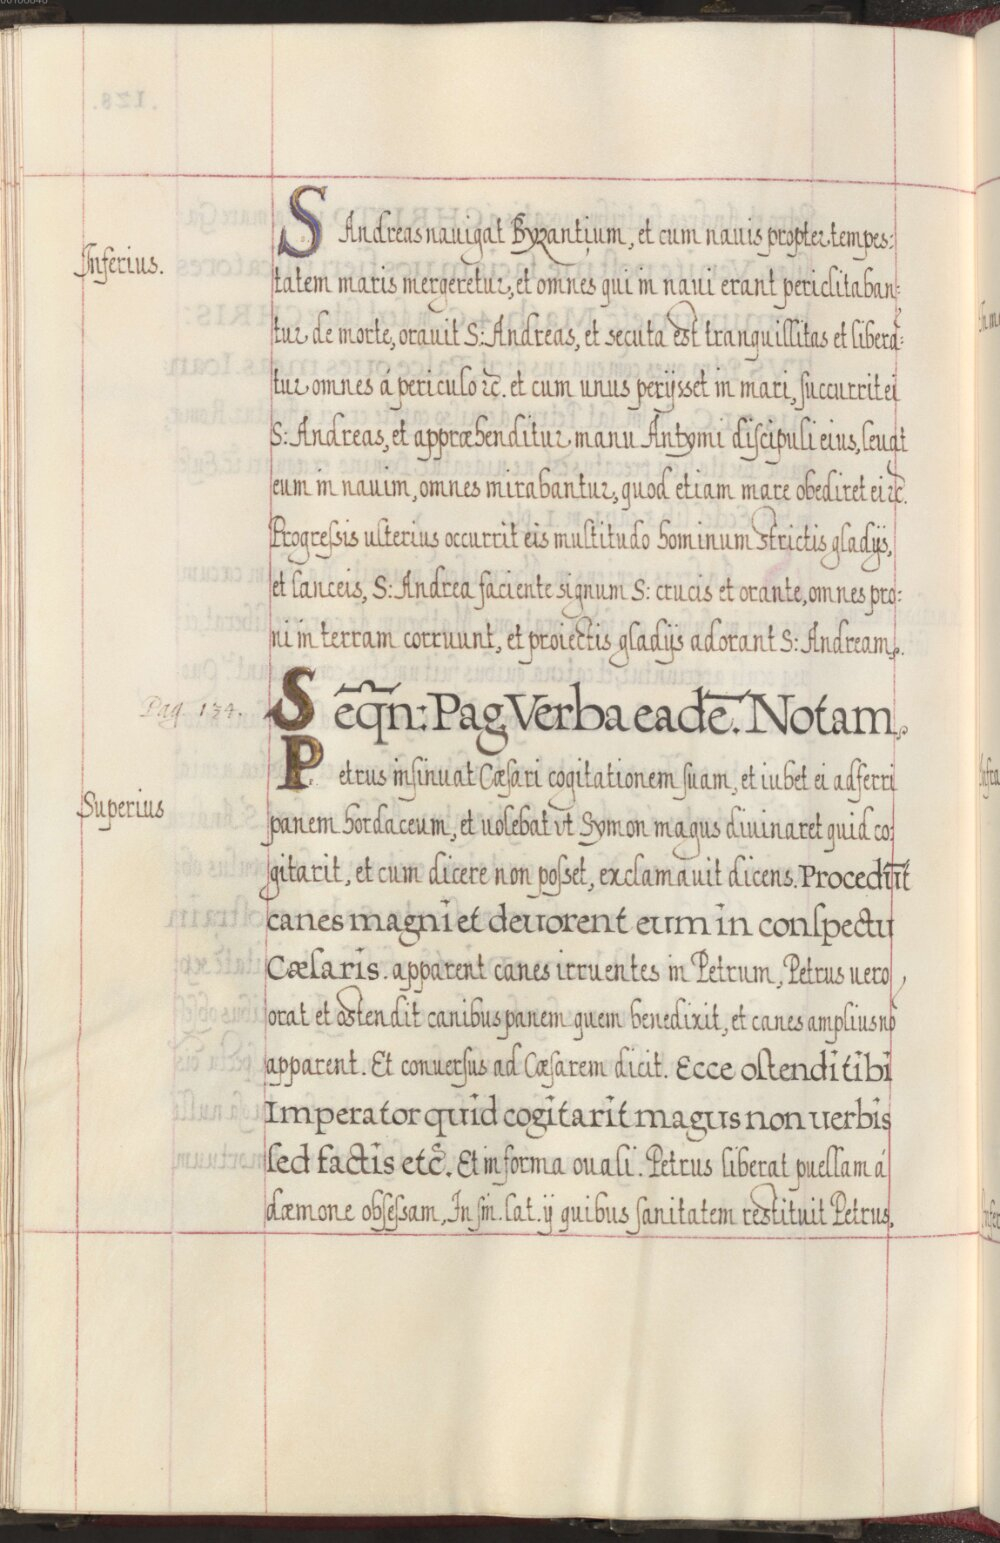 Inferius.
S Andreas nauigat Byzantium, et cum nauis propter tempes:
tatem maris mergeretur, et omnes qui in naui erant periclitaban:
tur de morte, orauit S: Andreas, et secuta est tranquillitas et libera:
tur omnes á periculo &c. et cum unus perijsset in mari, succurrit ei
S: Andreas, et appræhenditur manu Antymi discipuli eius, leuat
eum in nauim, omnes mirabantur, quod etiam mare obediret ei &c.
Progressis ulterius occurrit eis multitudo hominum strictis gladijs,
et lanceis, S: Andrea faciente signum S: crucis et orante, omnes pro:
ni in terram corruunt, et proiectis gladijs adorant S: Andream.
Pag 134.
Seqñ: Pag Verba eadē. Notam.
Superius
Petrus insinuat Cæsari cogitationem suam, et iubet ei adferri
panem hordaceum, et uolebat vt Symon magus diuinaret quid co:
gitarit, et cum dicere non posset, exclamauit dicens. Procedūt
canes magni et deuorent eum in conspectu
Cæsaris. apparent canes irruentes in Petrum, Petrus uero
orat et ostendit canibus panem quem benedixit, et canes amplius nō
apparent. Et conuersus ad Cæsarem dicit. Ecce ostendi tibi
Imperator quid cogitarit magus non uerbis
sed factis etc̄. Et in forma ouali. Petrus liberat puellam á
dæmone obsessam, In sin. lat. ij quibus sanitatem restituit Petrus,